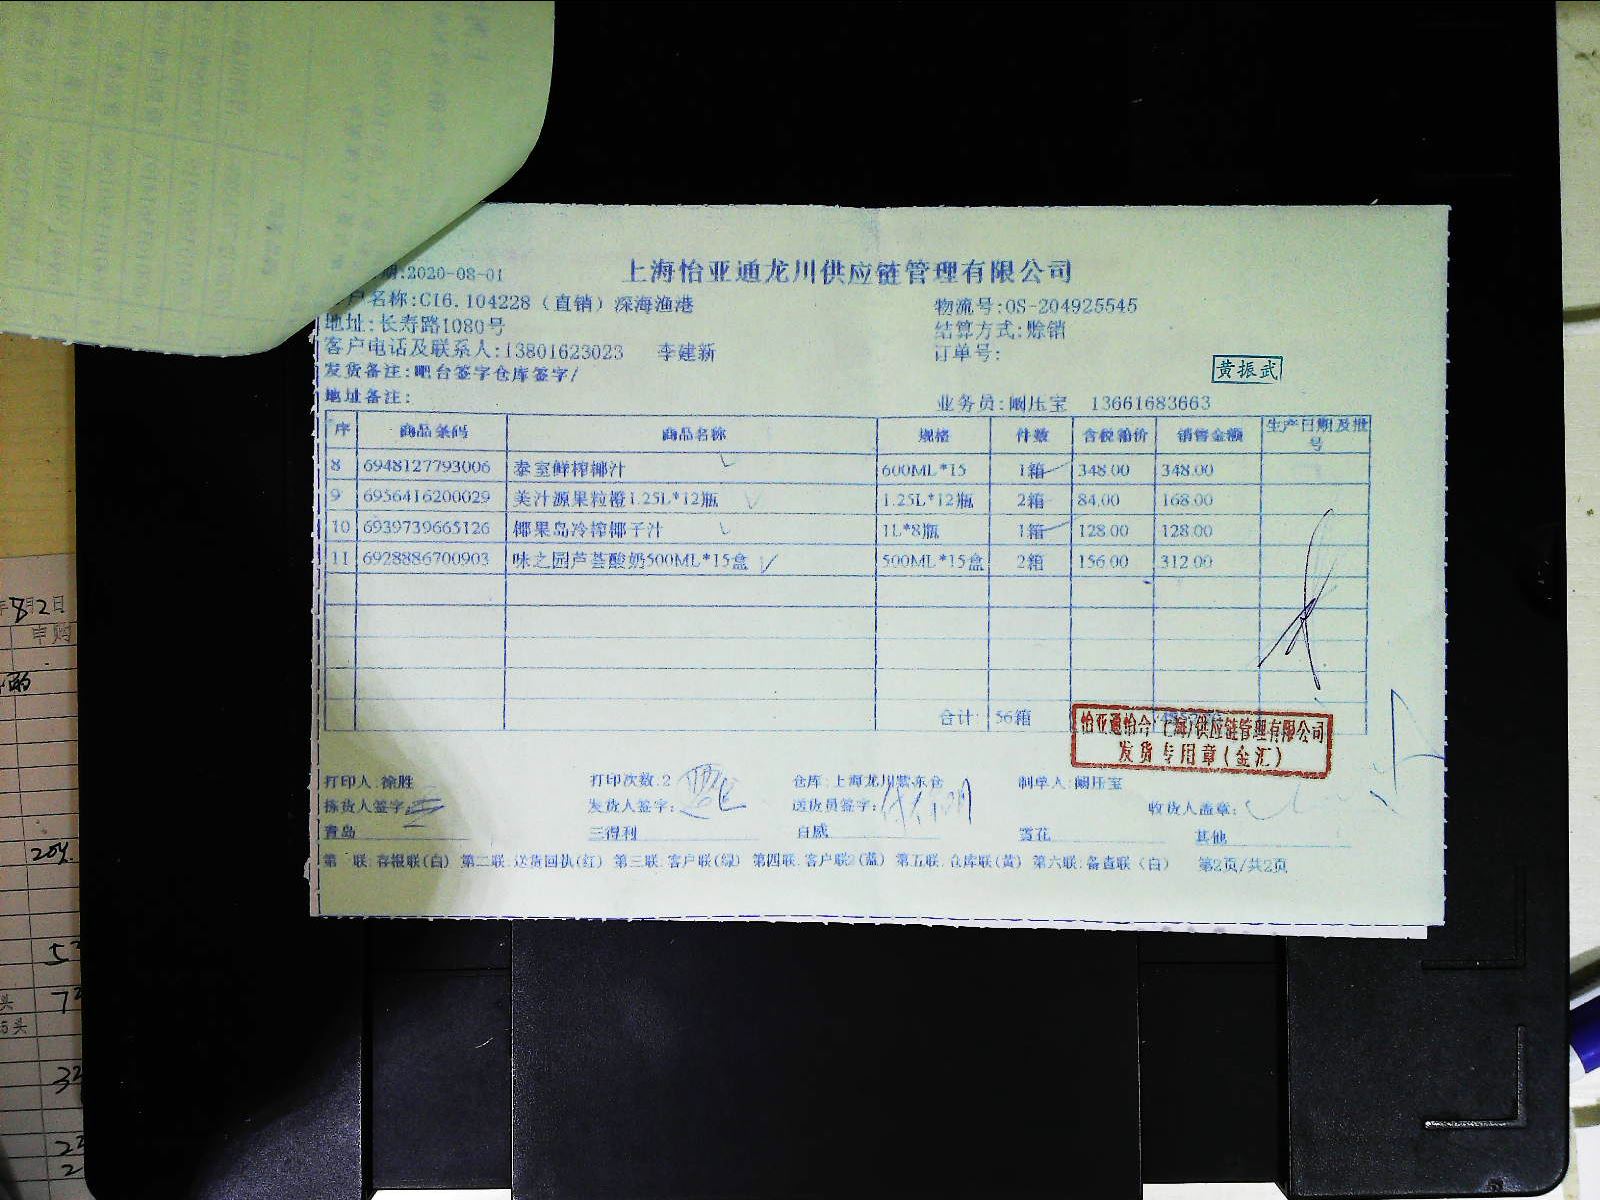 上海怡亚通龙川供应链管理有限公司
期:2020-08-01
户名称:C16.104228（直销）深海渔港
物流号:OS-204925545
地址:长寿路1080号
结算方式:赊销
客户电话及联系人:13801623023 李建新
订单号:
发货备注:吧台签字仓库签字/
黄振武
地址备注:
业务员:阚压宝 13661683663
序 商品条码 商品名称 规格 件数 含税箱价 销售金额 生产日期及批号
8 6948127793006 泰室鲜榨椰汁 600ML*15 1箱 348.00 348.00
9 6956416200029 美汁源果粒橙1.25L*12瓶 1.25L*12瓶 2箱 84.00 168.00
10 6939739665126 椰果岛冷榨椰子汁 1L*8瓶 1箱 128.00 128.00
11 6928886700903 味之园芦荟酸奶500ML*15盒 500ML*15盒 2箱 156.00 312.00
合计: 56箱
怡亚通怡合(上海)供应链管理有限公司
发货专用章(金汇)
打印人:徐胜 打印次数:2 仓库:上海龙川紫东仓 制单人:阚压宝
拣货人签字: 发货人签字: 送货员签字: 收货人盖章:
青岛 三得利 百威 雪花 其他
第一联:存根联(白) 第二联:送货回执(红) 第三联:客户联(绿) 第四联:客户联2(蓝) 第五联:仓库联(黄) 第六联:备查联（白） 第2页/共2页
年8月2日
申购
204.
头
头